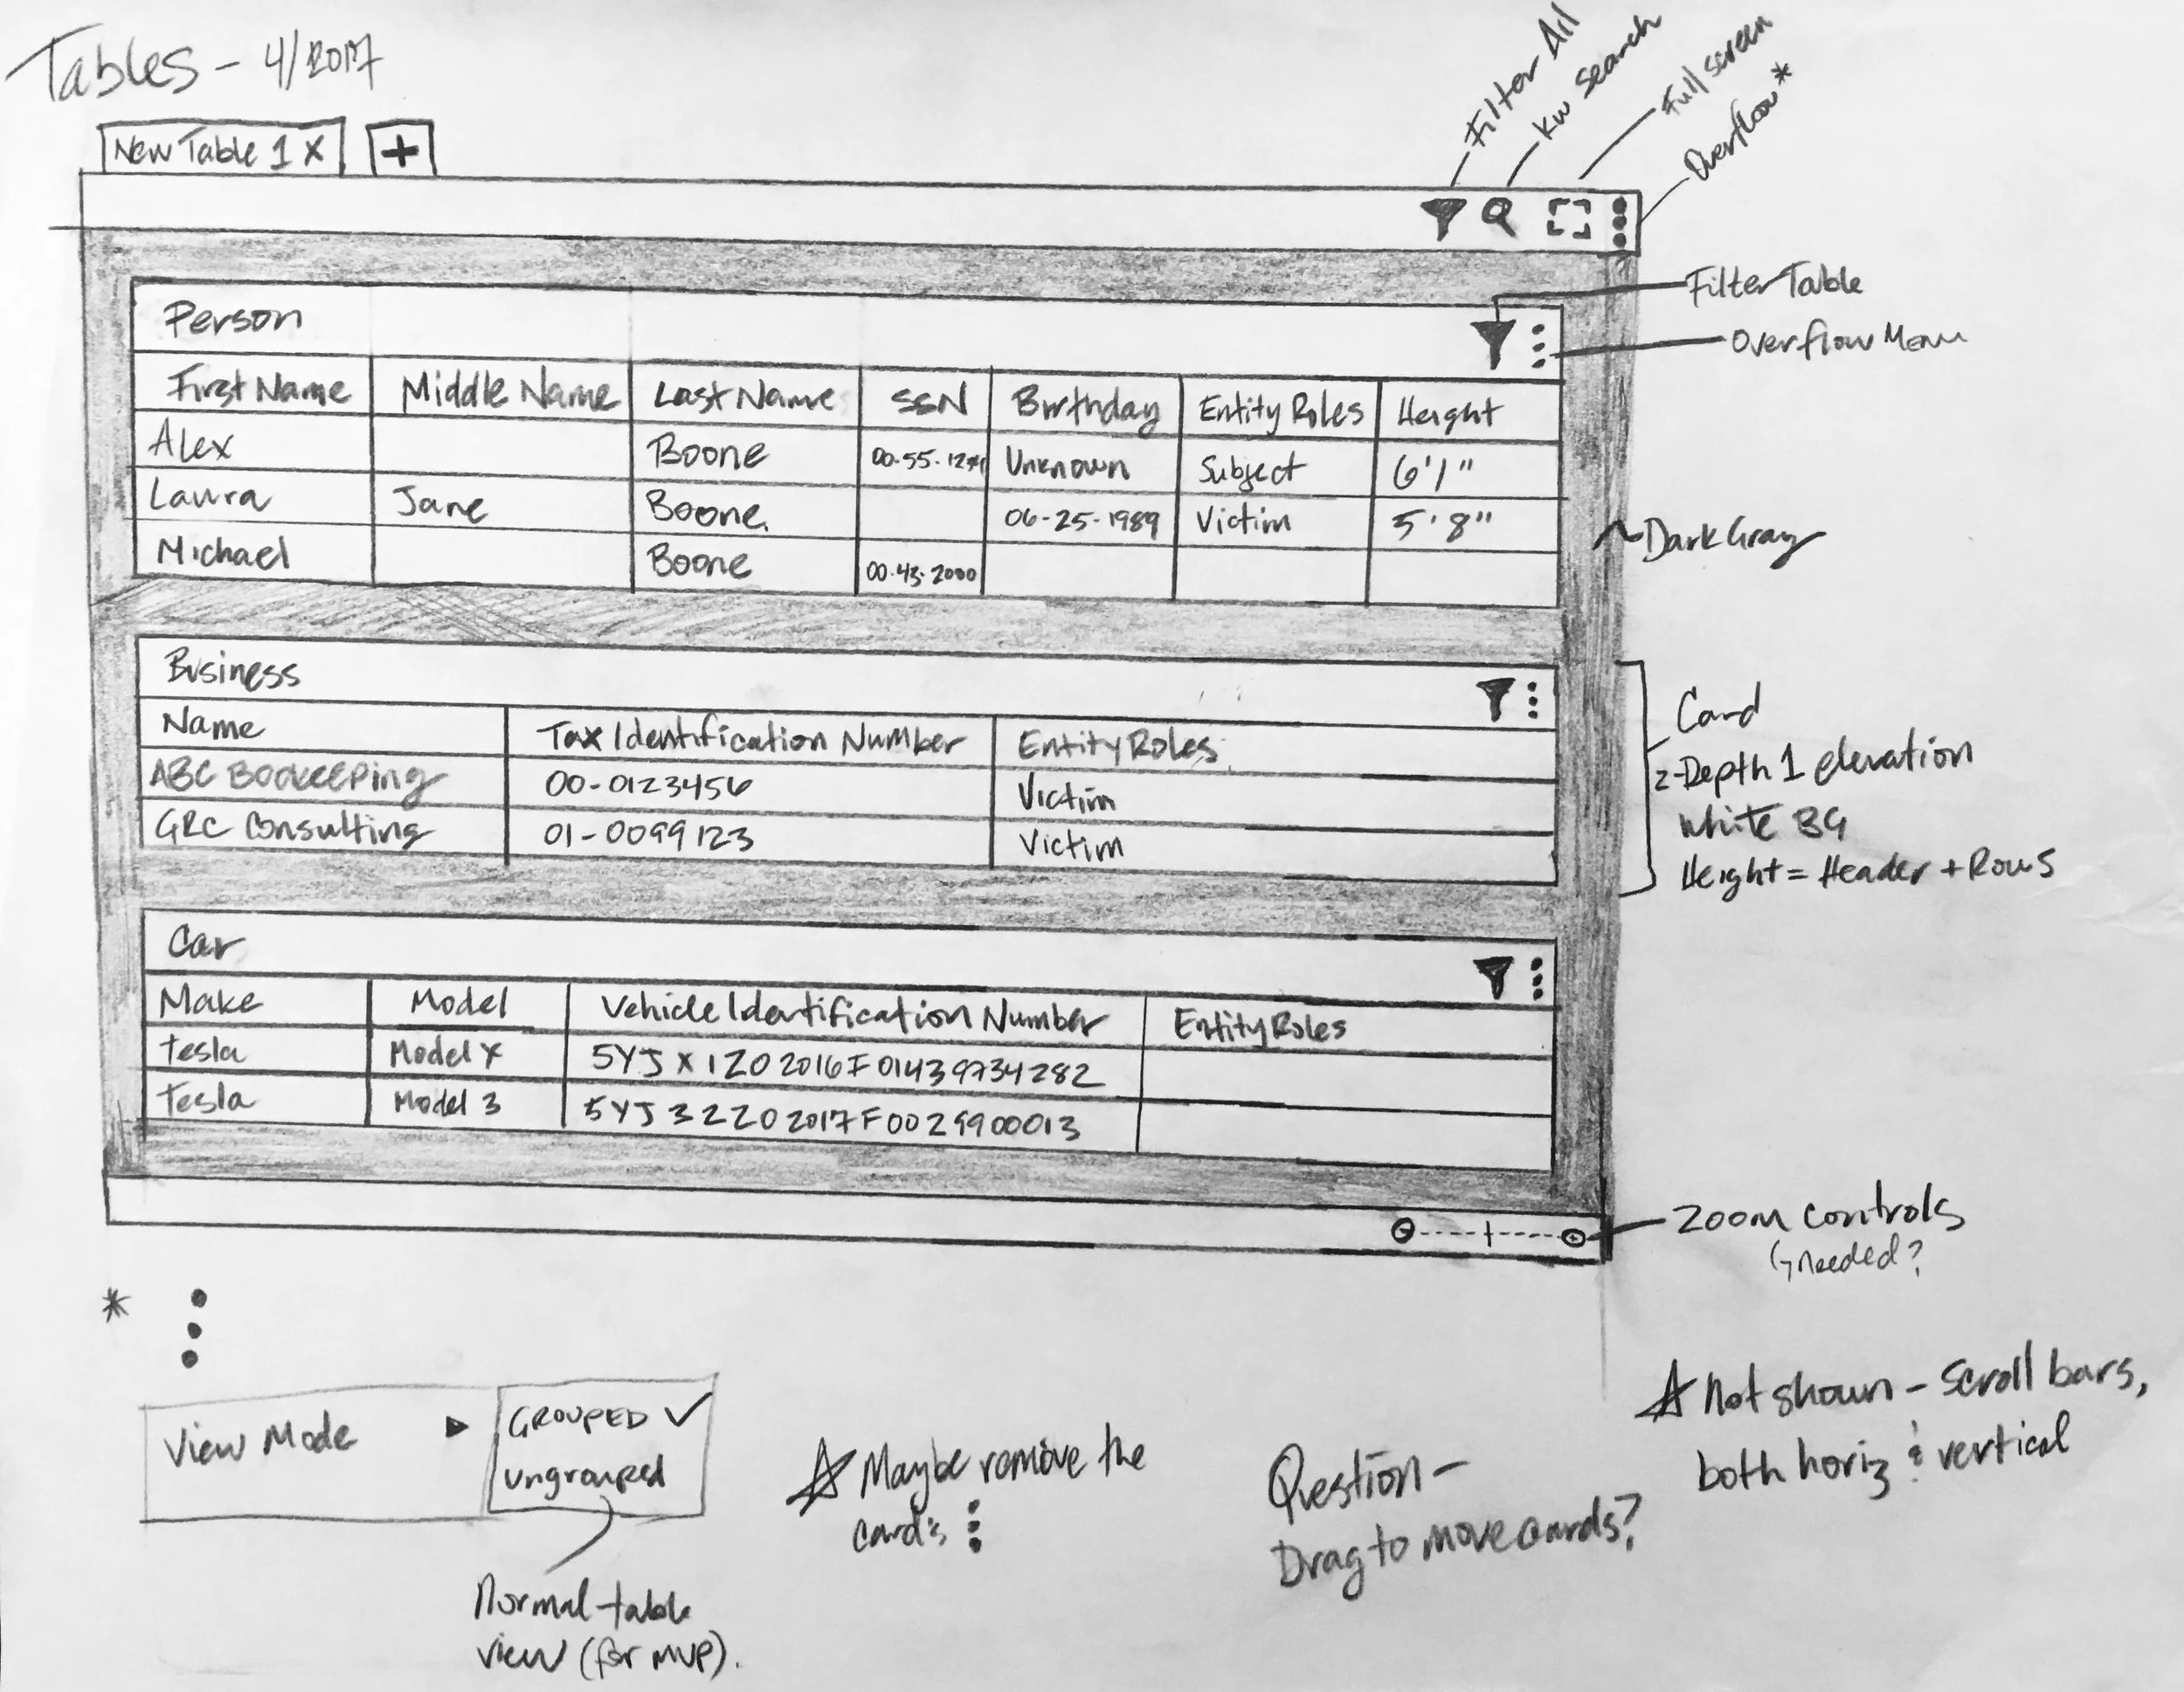 Tables - 4/2017
New Table 1 X +
Filter All
kw search
Full screen
Overflow*
Filter Table
Overflow Menu
Person
First Name Middle Name Last Name SSN Birthday Entity Roles Height
Alex Boone Unknown Subject 6'1"
Laura Jane Boone 06-25-1989 Victim 5'8"
Michael Boone 00.43.2000
Dark Gray
Business
Name Tax Identification Number Entity Roles
ABC Bookeeping 00-0123456 Victim
GRC Consulting 01-0099123 Victim
Card
z-Depth 1 elevation
White BG
Height = Header + Rows
Car
Make Model Vehicle Identification Number Entity Roles
Tesla Model X 5YJX1Z02016F01439734282
Tesla Model 3 5YJ32Z02017F0029900013
Zoom controls
needed?
*
View Mode ▶ GROUPED ✓
ungrouped
Normal table
view (for MVP).
☆ Maybe remove the
card's ⋮
Question -
Drag to move cards?
☆ Not shown - scroll bars,
both horiz & vertical